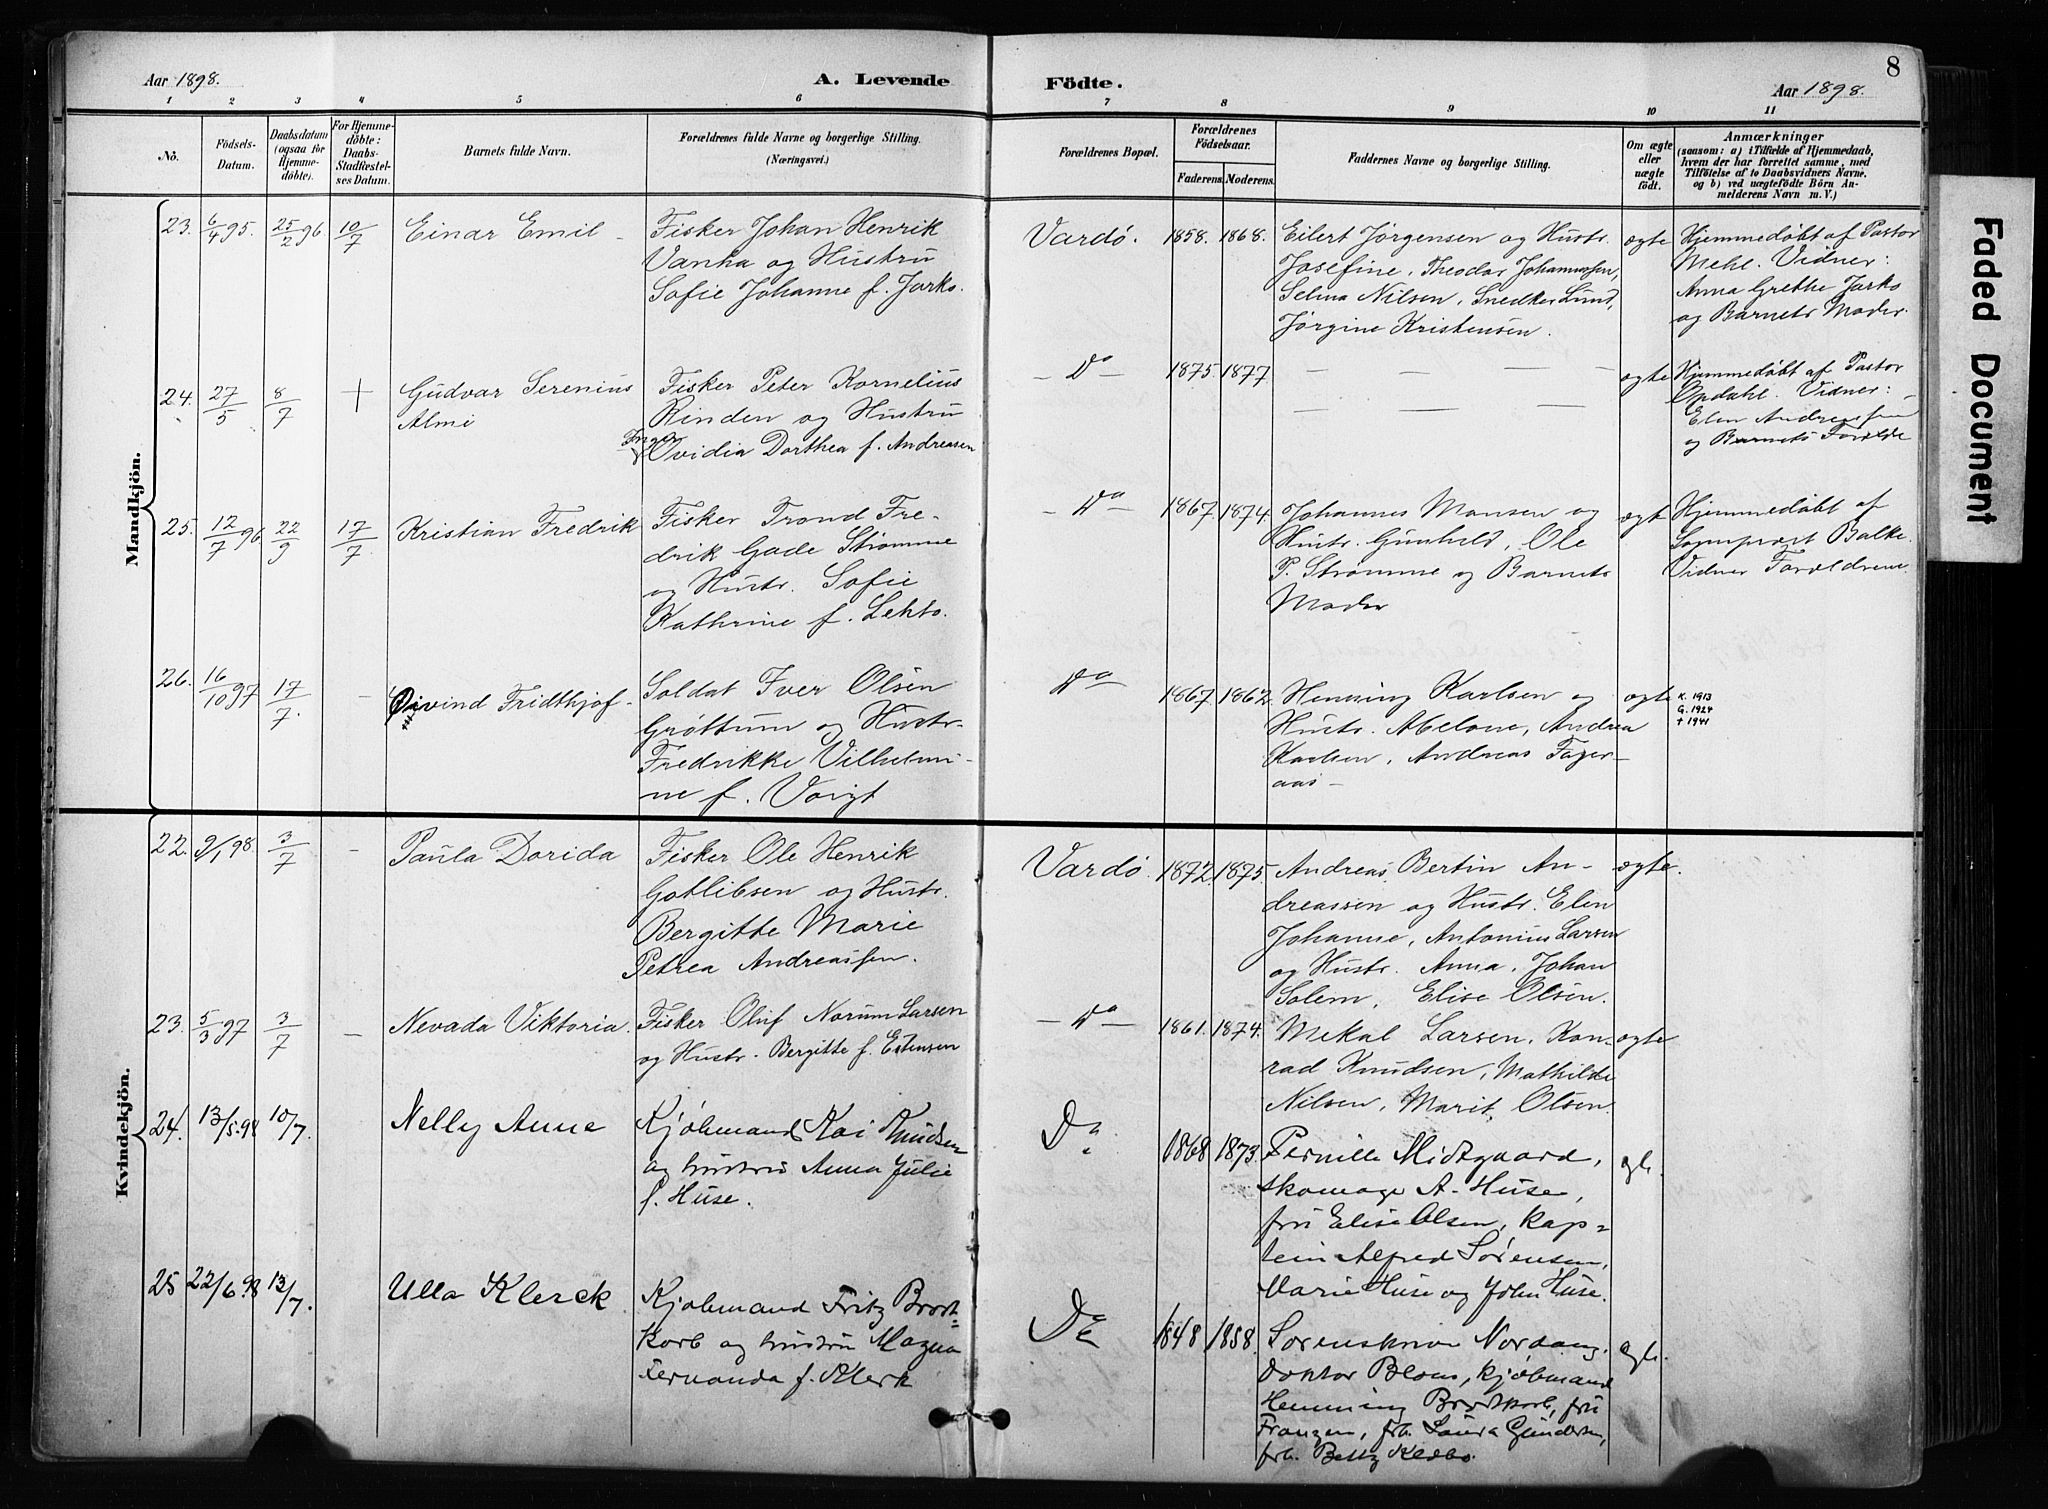 Aar 1898.
A. Levende
Födte.
Aar 1898.
8
1 2 3 4 5 6 7 8 9 10 11
No.
Födsels-
Datum.
Daabsdatum
(ogsaa for
Hjemme-
döbte).
For Hjemme-
döbte:
Daabs-
Stadfæstel-
ses Datum.
Barnets fulde Navn.
Forældrenes fulde Navne og borgerlige Stilling.
(Næringsvei.)
Forældrenes Bopæl.
Forældrenes
Födselsaar.
Faderens. Moderens.
Faddernes Navne og borgerlige Stilling.
Om ægte
eller
uægte
födt.
Anmærkninger
(saasom: a) i Tilfælde af Hjemmedaab,
hvem der har forrettet samme, med
Tilföielse af to Daabsvidners Navne,
og b) ved uægtefödte Börn An-
melderens Navn m. V.)
Mandkjön.
23. 6/4 95. 25/2 96. 10/7
Einar Emil -
Fisker Johan Henrik
Vanha og Hustru
Sofie Johanne f. Jorko.
Vardø. 1858. 1868.
Eilert Jørgensen og Hustr.
Josefine, Theodor Johannessen,
Selma Nilsen, Snedker Lund,
Jørgine Kristensen.
ægte
Hjemmedøbt af Pastor
Mehl. Vidner:
Anna Grethe Jorko
og Barnets Moder.
24. 27/5 8/7 +
Gudvar Serenius
Almi
Fisker Peter Kornelius
Rinden og Hustru
Inga
Ovidia Dorthea f. Andreasen
- Do - 1875. 1877
- - - -
- - -
ægte
Hjemmedøbt af Pastor
Opdahl. Vidner:
Elen Andreassen
og Barnets Foreldre
25. 12/7 96 22/9 17/7.
Kristian Fredrik
Fisker Trond Fre-
drik Gade Strømme
og Hustr. Sofie
Kathrine f. Lehto.
- Do - 1867. 1874.
Johannes Monsen og
Hustr. Gunhild, Ole
P. Strømme og Barnets
Moder
ægt
Hjemmedøbt af
Sognepræst Balke.
Vidner Forældrene.
26. 16/10 97 17/7. -
Øivind Fridthjof -
Soldat Iver Olsen
Grøttum og Hustr.
Fredrikke Vilhelmi-
ne f. Voigt
Do 1867. 1862.
Henning Karlsen og
Hustr. Abelone, Andrea
Karlsen, Andreas Fager-
aas -
ægte
K. 1913
G. 1924
† 1941
Kvindekjön.
22. 9/1 98. 3/7 -
Paula Dorida
Fisker Ole Henrik
Gotlibsen og Hustr.
Bergitte Marie
Petrea Andreassen.
Vardø 1872. 1875.
Andreas Bertin An-
dreassen og Hustr. Elen
Johanne, Antonius Larsen
og Hustr. Anna, Johan
Solem, Elise Olsen.
ægte.
23. 5/3 97 3/7 -
Nevada Viktoria.
Fisker Oluf Norum Larsen
og Hustr. Bergitte f. Estensen
- Do - 1861. 1874.
Mekal Larsen, Kon-
rad Knudsen, Mathilde
Nilsen, Marit Olsen.
ægte
24. 13/5. 98 10/7. -
Nelly Anne
Kjøbmand Kai Knudsen
og hustru Anna Julie
f. Huse.
Do 1868 1873.
Pernille Midtgaard,
skomag. A. Huse,
fru Elise Olsen, Kap-
tein Alfred Sørensen,
Marie Huse og John Huse.
ægte.
25 22/6 98 13/7.
Ulla Klerck
Kjøbmand Fritz Brodt=
korb og hustru Magna
Fernanda f. Klerk
Do 1848 1858.
Sorenskriver Nordang,
Doktor Bloms, kjøbmand
Henning Brodtkorb, fru
Franzen, frk. Laura Gundersen,
frk. Betty
ægte.
Faded Document